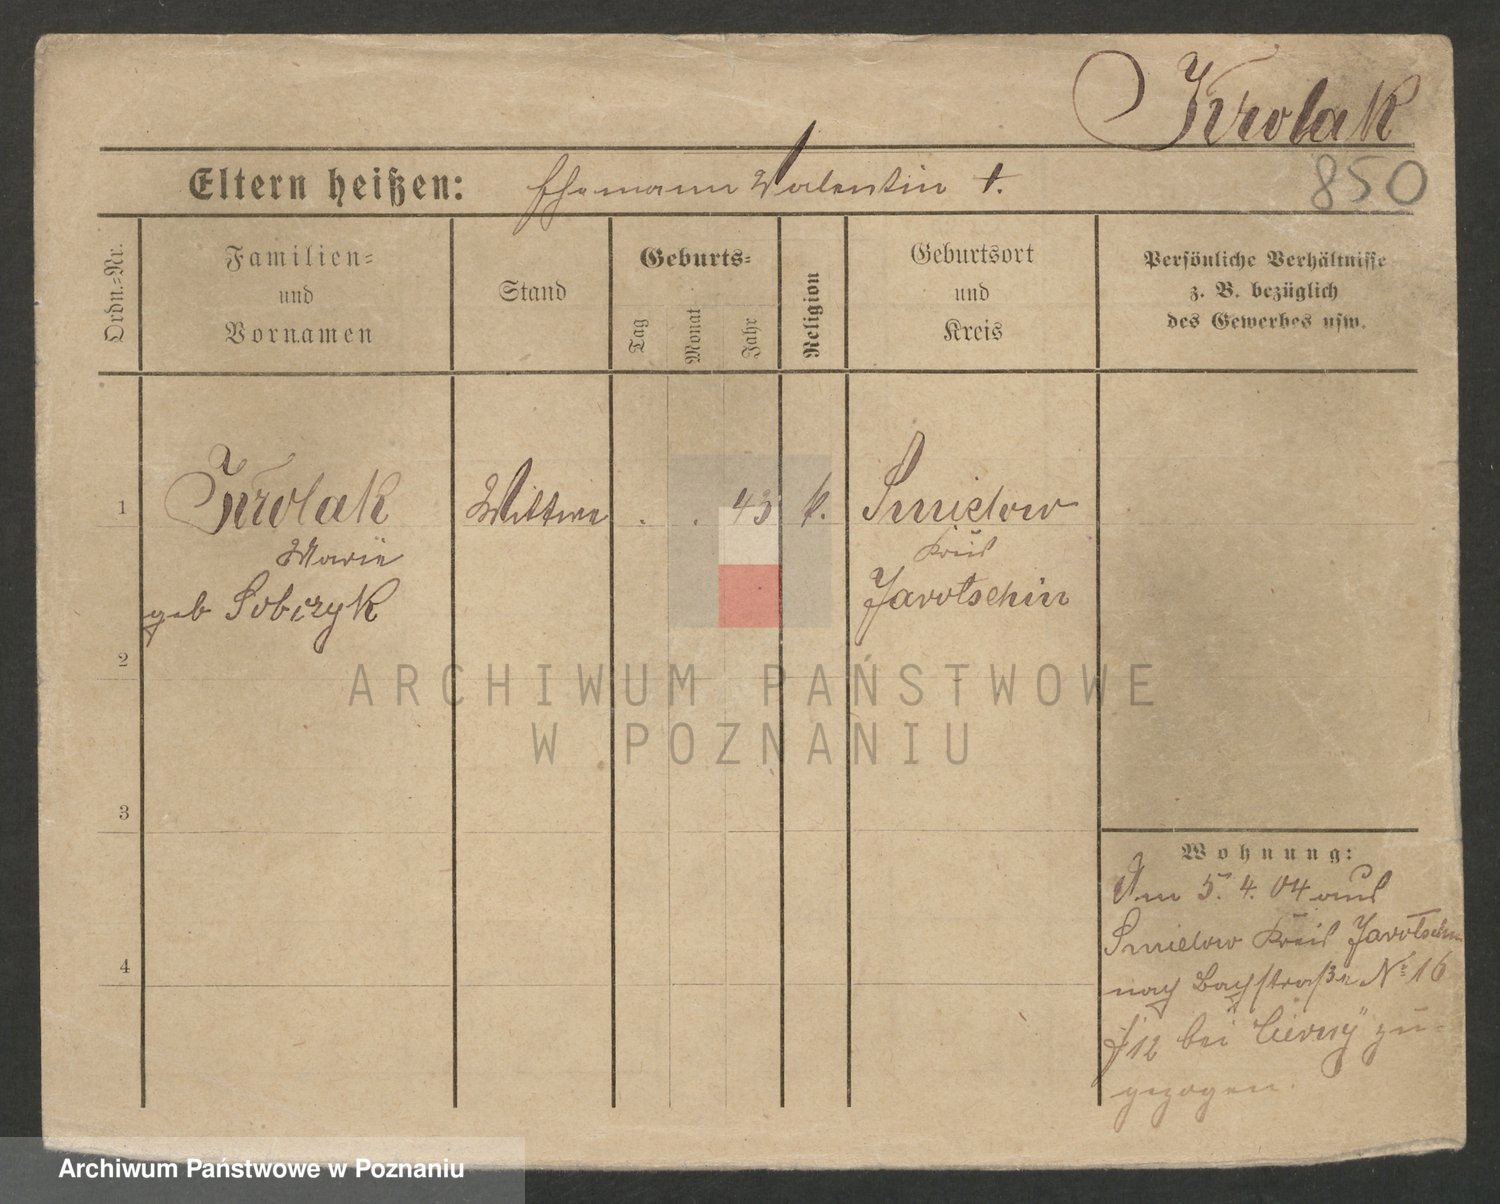 Krolak
850
Eltern heißen: Ehemann Valentin †.
Ordn.-Nr.
Familien-
und
Vornamen
Stand
Geburts-
Tag
Monat
Jahr
Religion
Geburtsort
und
Kreis
Persönliche Verhältnisse
z. B. bezüglich
des Gewerbes usw.
1
Krolak
Marie
geb Sobczyk
Wittwe
. . 43
k.
Smielow
Kreis
Jarotschin
2
ARCHIWUM PAŃSTWOWE
W POZNANIU
3
4
Wohnung:
Am 5. 4. 04 aus
Smielow Kreis Jarotschin
nach Bachstraße No 16
bei zu-
gezogen.
Archiwum Państwowe w Poznaniu